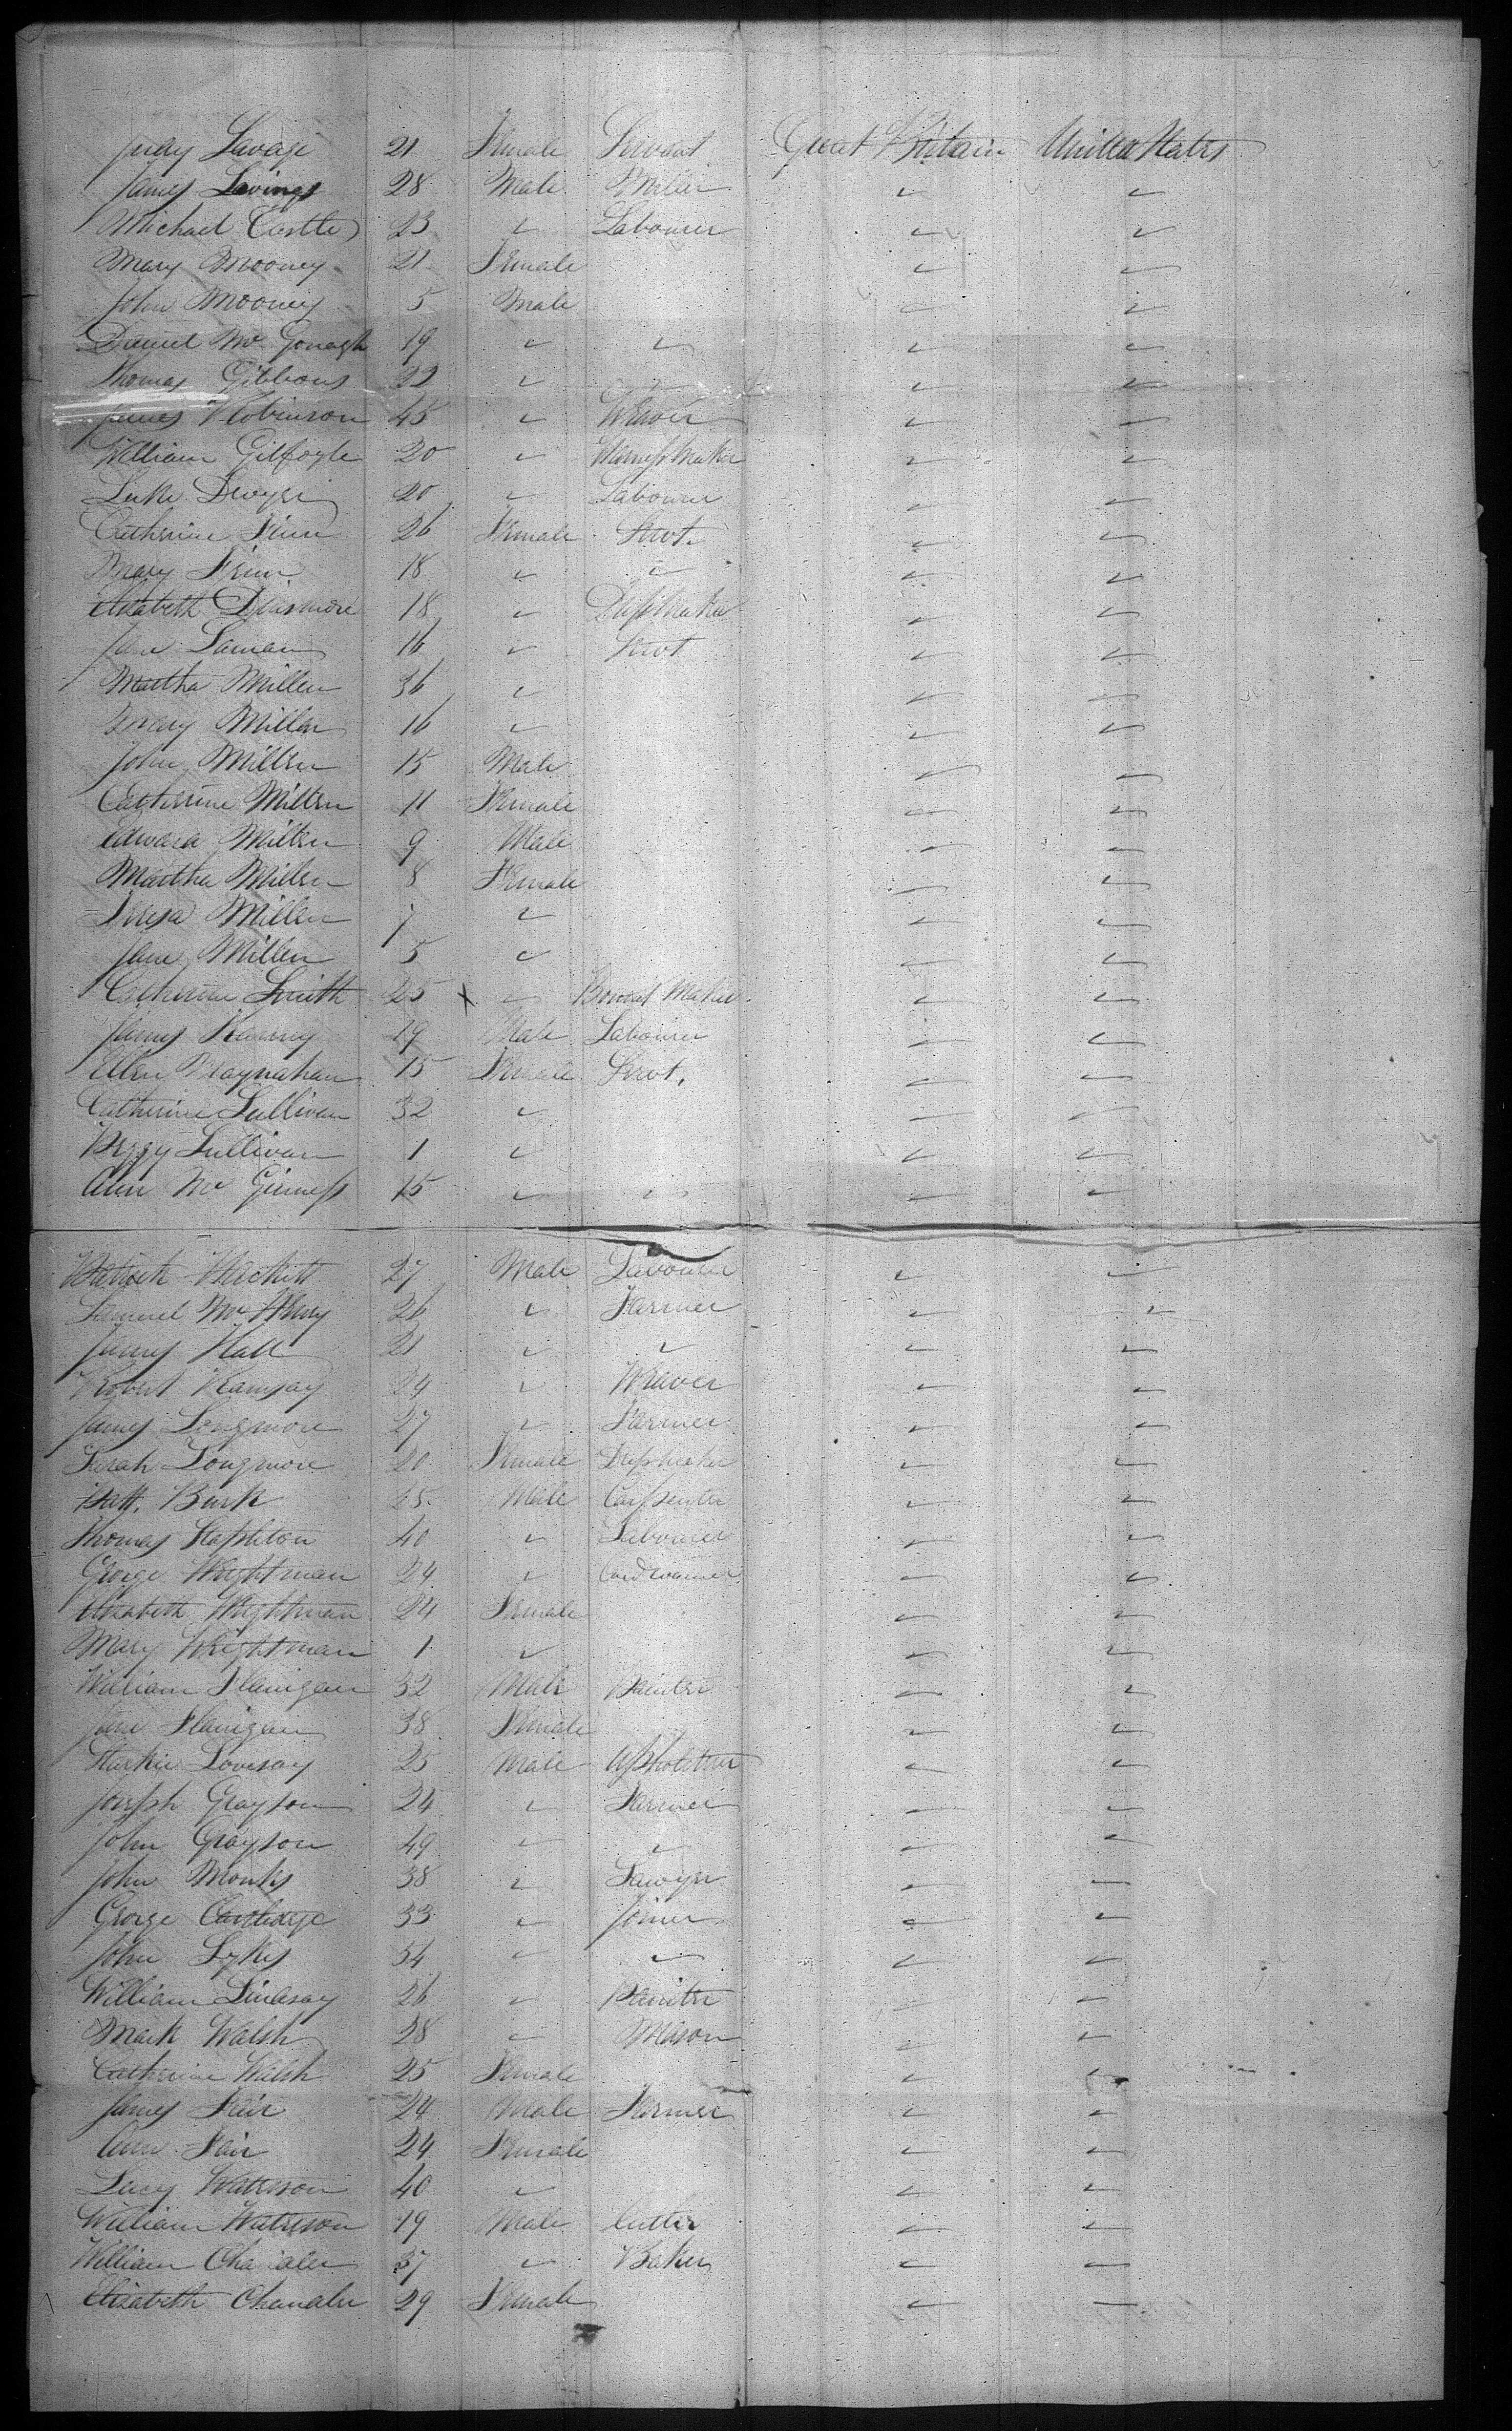 Judy Savage 21 Female Servant Great Britain United States
James Savings 28 Male Miller ✓ ✓
Michael Castle 23 ✓ Labourer ✓ ✓
Mary Mooney 21 Female ✓ ✓
John Mooney 5 Male ✓ ✓
Daniel Mc Gonagh 19 ✓ ✓ ✓ ✓
Thomas Gibbons 22 ✓ ✓ ✓ ✓
James Robinson 45 ✓ Weaver ✓ ✓
William Gilfoyle 20 ✓ Harness Maker ✓ ✓
Luke Dwyer 20 ✓ Labourer ✓ ✓
Catherine 26 Female Servt. ✓ ✓
Mary 18 ✓ ✓ ✓ ✓
Elizabeth Densmore 18 ✓ Dressmaker ✓ ✓
Jane 16 ✓ Servt ✓ ✓
Martha Millen 36 ✓ ✓ ✓
Mary Millen 16 ✓ ✓ ✓
John Millen 15 Male ✓ ✓
Catherine Millen 11 Female ✓ ✓
Edward Millen 9 Male ✓ ✓
Martha Millen 8 Female ✓ ✓
Teresa Millen 7 ✓ ✓ ✓
Jane Millen 5 ✓ ✓ ✓
Catherine Smith 25 x ✓ Bonnet Maker ✓ ✓
James Kearney 19 Male Labourer ✓ ✓
Ellen Moynahan 15 Female Servt. ✓ ✓
Catherine Sullivan 32 ✓ ✓ ✓
Peggy Sullivan 1 ✓ ✓ ✓
Ann Mc Ginness 15 ✓ ✓ ✓ ✓
Patrick Hackett 27 Male Labourer ✓ ✓
Samuel Mc Henry 26 ✓ Farmer ✓ ✓
James Hall 21 ✓ ✓ ✓ ✓
Robert Ramsay 24 ✓ Weaver ✓ ✓
James Longmore 27 ✓ Farmer ✓ ✓
Sarah Longmore 20 Female Dressmaker ✓ ✓
Patt. Burk 25 Male Carpenter ✓ ✓
Thomas Stapleton 40 ✓ Labourer ✓ ✓
George Wightman 24 ✓ Cordwainer ✓ ✓
Elizabeth Wightman 24 Female ✓ ✓
Mary Wightman 1 ✓ ✓ ✓
William Flanigan 32 Male Painter ✓ ✓
Jane Flanigan 38 Female ✓ ✓
Starkie Lovesay 25 Male Upholsterer ✓ ✓
Joseph Grayson 24 ✓ Farmer ✓ ✓
John Grayson 49 ✓ ✓ ✓ ✓
John Monks 38 ✓ Sawyer ✓ ✓
George Cartledge 33 ✓ Joiner ✓ ✓
John Sykes 34 ✓ ✓ ✓ ✓
William Lindsay 26 ✓ Painter ✓ ✓
Mark Walsh 28 ✓ Mason ✓ ✓
Catherine Walsh 25 Female ✓ ✓
James Fair 24 Male Farmer ✓ ✓
Ann Fair 24 Female ✓ ✓
Lucy Waterson 40 ✓ ✓ ✓
William Waterson 19 Male Cutler ✓ ✓
William Chandler 37 ✓ Baker ✓ ✓
Elizabeth Chandler 29 Female ✓ ✓